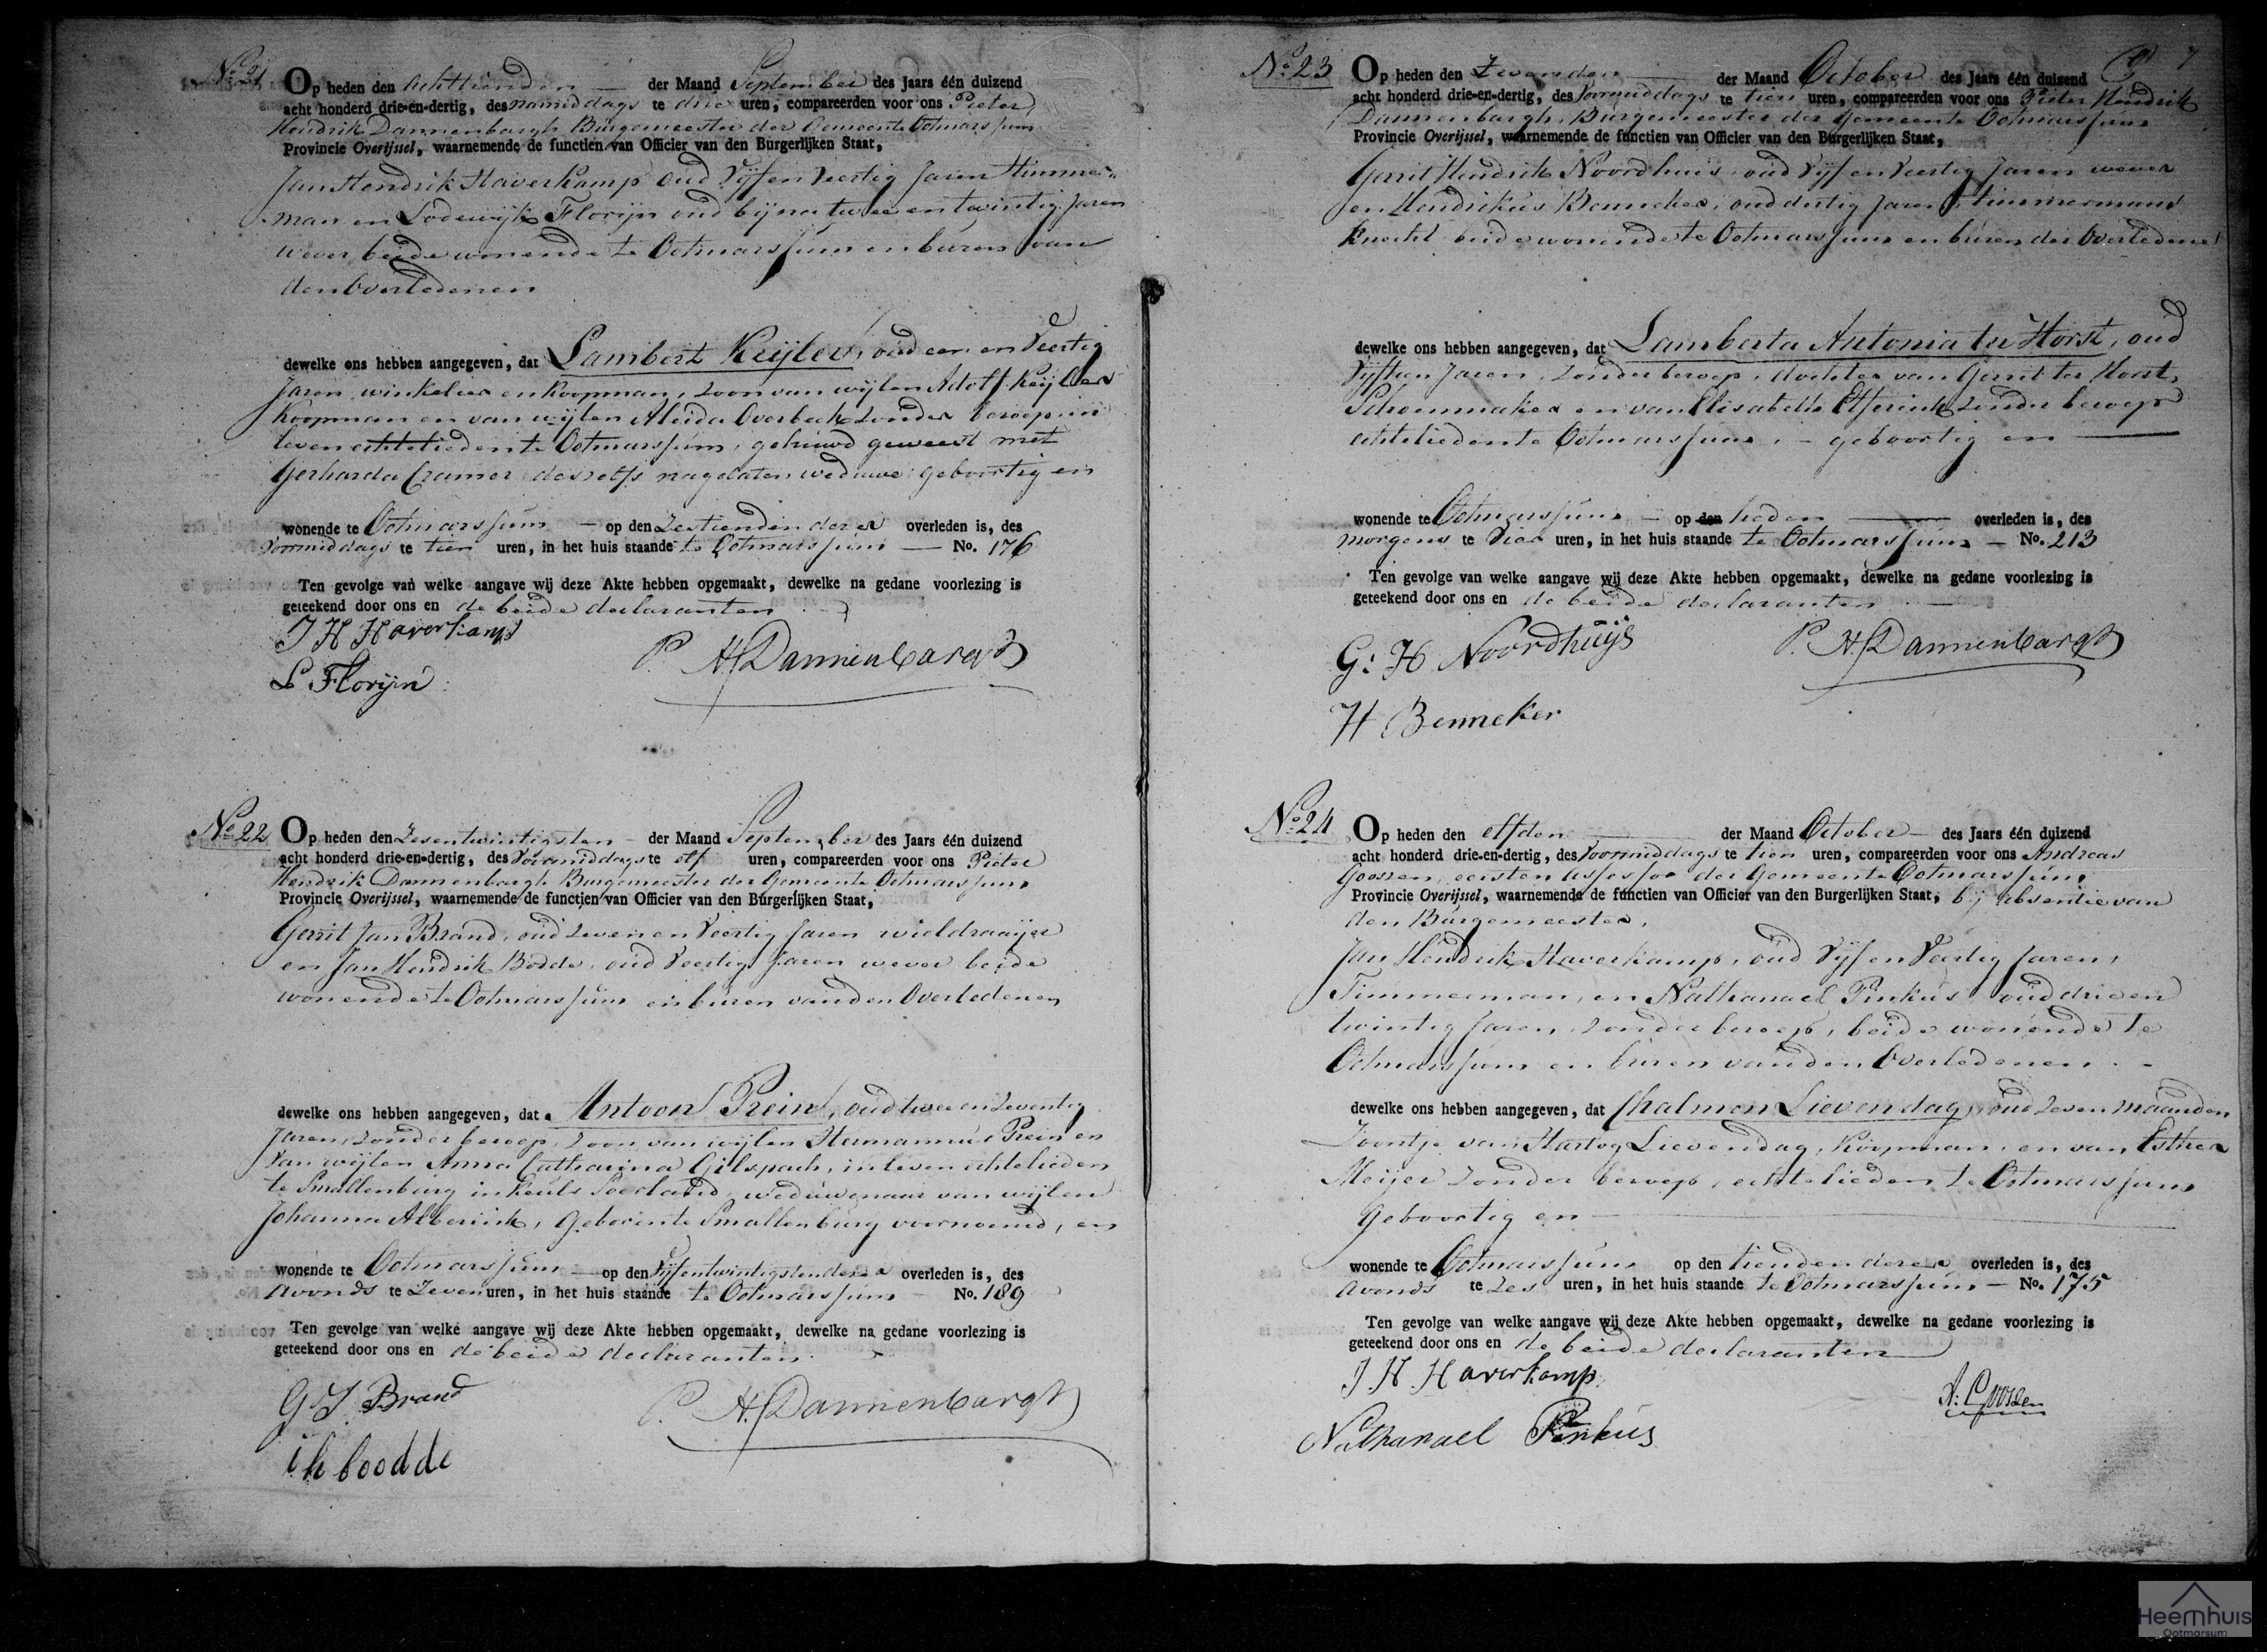 No. 21
Op heden den Achttienden der Maand September des Jaars één duizend
acht honderd drie-en-dertig, des namiddags te drie uren, compareerden voor ons Pieter
Hendrik Dannenbargh Burgemeester der Gemeente Ootmarssum
Provincie Overijssel, waarnemende de functien van Officier van den Burgerlijken Staat,
Jan Hendrik Haverkamp oud Vijf en Veertig Jaren Timmer-
man en Lodewijk Florijn oud bijna twee en twintig Jaren
wever beide wonende te Ootmarssum en buren van
den Overledenen
dewelke ons hebben aangegeven, dat Lambert Keijler, oud een en Veertig
Jaren winkelier en koopman, zoon van wijlen Adolf Keijler
koopman en van wijlen Aleida Overbeek zonder beroep in
leven echtelieden te Ootmarssum, gehuwd geweest met
Gerharda Cramer deszelfs nagelaten weduwe geboortig en
wonende te Ootmarssum op den Zestienden dezer overleden is, des
Voormiddags te tien uren, in het huis staande te Ootmarssum No. 176
Ten gevolge van welke aangave wij deze Akte hebben opgemaakt, dewelke na gedane voorlezing is
geteekend door ons en de beide declaranten
J H Haverkamp
P. H. Dannenbargh
L Florijn
No. 22
Op heden den Zesentwintigsten der Maand September des Jaars één duizend
acht honderd drie-en-dertig, des Voormiddags te elf uren, compareerden voor ons Pieter
Hendrik Dannenbargh Burgemeester der Gemeente Ootmarssum
Provincie Overijssel, waarnemende de functien van Officier van den Burgerlijken Staat,
Gerrit Jan Brand, oud Zeven en Veertig Jaren wieldraaijer
en Jan Hendrik Bodde, oud Veertig Jaren wever beide
wonende te Ootmarssum en buren van den Overledenen
dewelke ons hebben aangegeven, dat Antoon Prein, oud twee en Zeventig
Jaren, zonder beroep, zoon van wijlen Hermannus Prein en
van wijlen Anna Catharina Gilspach, in leven echtelieden
te Smallenburg in Keuls Soerland, weduwenaar van wijlen
Johanna Alberink, Geboren te Smallenburg voornoemd, en
wonende te Ootmarssum op den Vijfentwintigsten dezer overleden is, des
Avonds te Zeven uren, in het huis staande te Ootmarssum No. 189
Ten gevolge van welke aangave wij deze Akte hebben opgemaakt, dewelke na gedane voorlezing is
geteekend door ons en de beide declaranten
G J. Brand
P. H. Dannenbargh
ih boodde
7
No. 23
Op heden den Zevenden der Maand October des Jaars één duizend
acht honderd drie-en-dertig, des Voormiddags te tien uren, compareerden voor ons Pieter Hendrik
Dannenbargh, Burgemeester der Gemeente Ootmarssum
Provincie Overijssel, waarnemende de functien van Officier van den Burgerlijken Staat,
Gerrit Hendrik Noordhuis oud Vijf en Veertig Jaren wever
en Hendrikus Benneker, oud dertig Jaren timmermans
knecht beide wonende te Ootmarssum en buren der Overledene
dewelke ons hebben aangegeven, dat Lamberta Antonia ter Horst, oud
Vijftien Jaren, zonder beroep, dochter van Gerrit ter Horst,
Schoenmaker en van Elisabeth zonder beroep
echtelieden te Ootmarssum, geboortig en
wonende te Ootmarssum op den heden overleden is, des
morgens te Vier uren, in het huis staande te Ootmarssum No. 213
Ten gevolge van welke aangave wij deze Akte hebben opgemaakt, dewelke na gedane voorlezing is
geteekend door ons en de beide declaranten
G: H Noordhuijs
P. H. Dannenbargh
H Benneker
No. 24
Op heden den elfden der Maand October des Jaars één duizend
acht honderd drie-en-dertig, des Voormiddags te tien uren, compareerden voor ons Andreas
Goossen, eersten Assessor der Gemeente Ootmarssum
Provincie Overijssel, waarnemende de functien van Officier van den Burgerlijken Staat, bij absentie van
den Burgemeester,
Jan Hendrik Haverkamp, oud Vijf en Veertig Jaren,
Timmerman, en Nathanael Pinkus oud drie en
twintig Jaren, zonder beroep, beide wonende te
Ootmarssum en buren van den Overledenen
dewelke ons hebben aangegeven, dat Chalmon Lievendag, oud Zeven maanden
Zoontje van Hartog Lievendag, Koopman en van Esther
Meijer zonder beroep, echtelieden te Ootmarssum
Geboortig en
wonende te Ootmarssum op den tienden dezer overleden is, des
Avonds te Zes uren, in het huis staande te Ootmarssum No. 175
Ten gevolge van welke aangave wij deze Akte hebben opgemaakt, dewelke na gedane voorlezing is
geteekend door ons en de beide declaranten
J. H. Haverkamp
A: Goossen
Nathanael Pinkus
Heemhuis
Ootmarsum